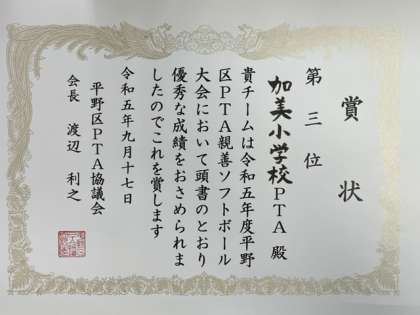 賞状
第三位
加美小学校PTA殿
貴チームは令和五年度平野
区PTA親善ソフトボール
大会において頭書のとおり
優秀な成績をおさめられま
したのでこれを賞します
令和五年九月十七日
平野区PTA協議会
会長 渡辺 利之